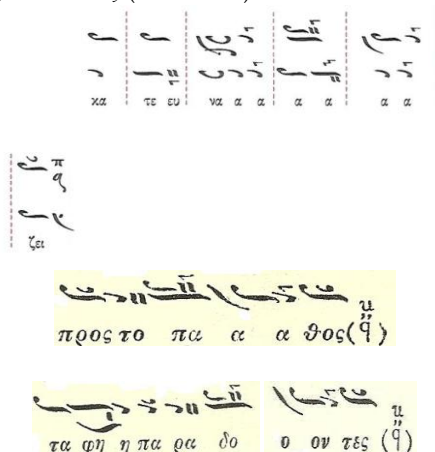 κα τε ευ να α α α α α α
ζει
προς το πα α α θος (q̈)
τα φη η πα ρα δο ο ον τες (q̈)